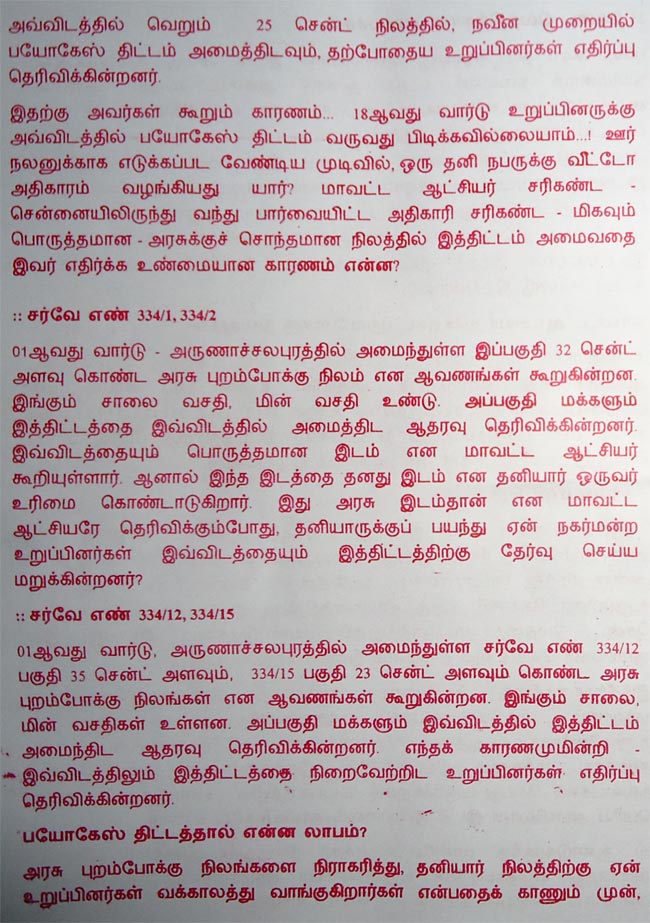 அவ்விடத்தில் வெறும் 25 சென்ட் நிலத்தில், நவீன முறையில்
பயோகேஸ் திட்டம் அமைத்திடவும், தற்போதைய உறுப்பினர்கள் எதிர்ப்பு
தெரிவிக்கின்றனர்.
இதற்கு அவர்கள் கூறும் காரணம்... 18ஆவது வார்டு உறுப்பினருக்கு
அவ்விடத்தில் பயோகேஸ் திட்டம் வருவது பிடிக்கவில்லையாம்...! ஊர்
நலனுக்காக எடுக்கப்பட வேண்டிய முடிவில், ஒரு தனி நபருக்கு வீட்டோ
அதிகாரம் வழங்கியது யார்? மாவட்ட ஆட்சியர் சரிகண்ட -
சென்னையிலிருந்து வந்து பார்வையிட்ட அதிகாரி சரிகண்ட - மிகவும்
பொருத்தமான - அரசுக்குச் சொந்தமான நிலத்தில் இத்திட்டம் அமைவதை
இவர் எதிர்க்க உண்மையான காரணம் என்ன?
:: சர்வே எண் 334/1, 334/2
01ஆவது வார்டு - அருணாச்சலபுரத்தில் அமைந்துள்ள இப்பகுதி 32 சென்ட்
அளவு கொண்ட அரசு புறம்போக்கு நிலம் என ஆவணங்கள் கூறுகின்றன.
இங்கும் சாலை வசதி, மின் வசதி உண்டு. அப்பகுதி மக்களும்
இத்திட்டத்தை இவ்விடத்தில் அமைத்திட ஆதரவு தெரிவிக்கின்றனர்.
இவ்விடத்தையும் பொருத்தமான இடம் என மாவட்ட ஆட்சியர்
கூறியுள்ளார். ஆனால் இந்த இடத்தை தனது இடம் என தனியார் ஒருவர்
உரிமை கொண்டாடுகிறார். இது அரசு இடம்தான் என மாவட்ட
ஆட்சியரே தெரிவிக்கும்போது, தனியாருக்குப் பயந்து ஏன் நகர்மன்ற
உறுப்பினர்கள் இவ்விடத்தையும் இத்திட்டத்திற்கு தேர்வு செய்ய
மறுக்கின்றனர்?
:: சர்வே எண் 334/12, 334/15
01ஆவது வார்டு, அருணாச்சலபுரத்தில் அமைந்துள்ள சர்வே எண் 334/12
பகுதி 35 சென்ட் அளவும், 334/15 பகுதி 23 சென்ட் அளவும் கொண்ட அரசு
புறம்போக்கு நிலங்கள் என ஆவணங்கள் கூறுகின்றன. இங்கும் சாலை,
மின் வசதிகள் உள்ளன. அப்பகுதி மக்களும் இவ்விடத்தில் இத்திட்டம்
அமைந்திட ஆதரவு தெரிவிக்கின்றனர். எந்தக் காரணமுமின்றி -
இவ்விடத்திலும் இத்திட்டத்தை நிறைவேற்றிட உறுப்பினர்கள் எதிர்ப்பு
தெரிவிக்கின்றனர்.
பயோகேஸ் திட்டத்தால் என்ன லாபம்?
அரசு புறம்போக்கு நிலங்களை நிராகரித்து, தனியார் நிலத்திற்கு ஏன்
உறுப்பினர்கள் வக்காலத்து வாங்குகிறார்கள் என்பதைக் காணும் முன்,